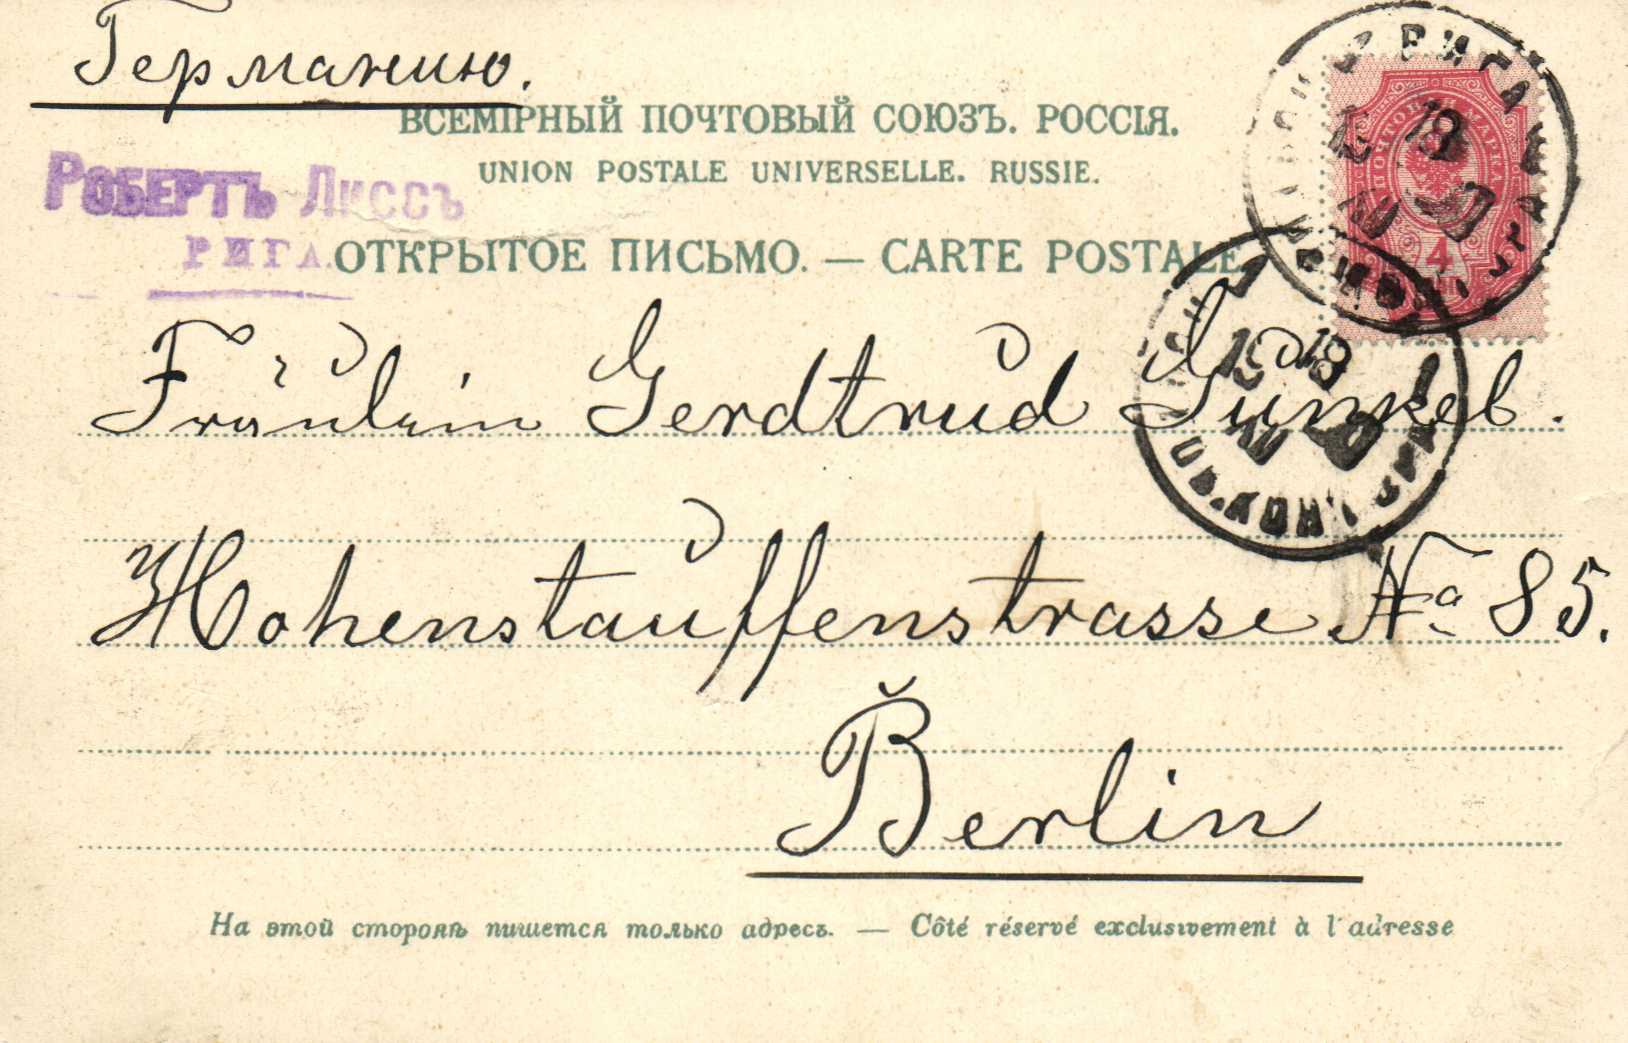 Германию.
ВСЕМІРНЫЙ ПОЧТОВЫЙ СОЮЗЪ. РОССІЯ.
UNION POSTALE UNIVERSELLE. RUSSIE.
РОБЕРТЪ ЛИССЪ
РИГА.
ОТКРЫТОЕ ПИСЬМО. — CARTE POSTALE
РИГА
ПОЧТОВ МАРКА
4
Fräulein Gerdtrud Gunkel.
Hohenstauffenstrasse No 85.
Berlin
На этой сторонѣ пишется только адресъ. — Côté réservé exclusivement à l'adresse